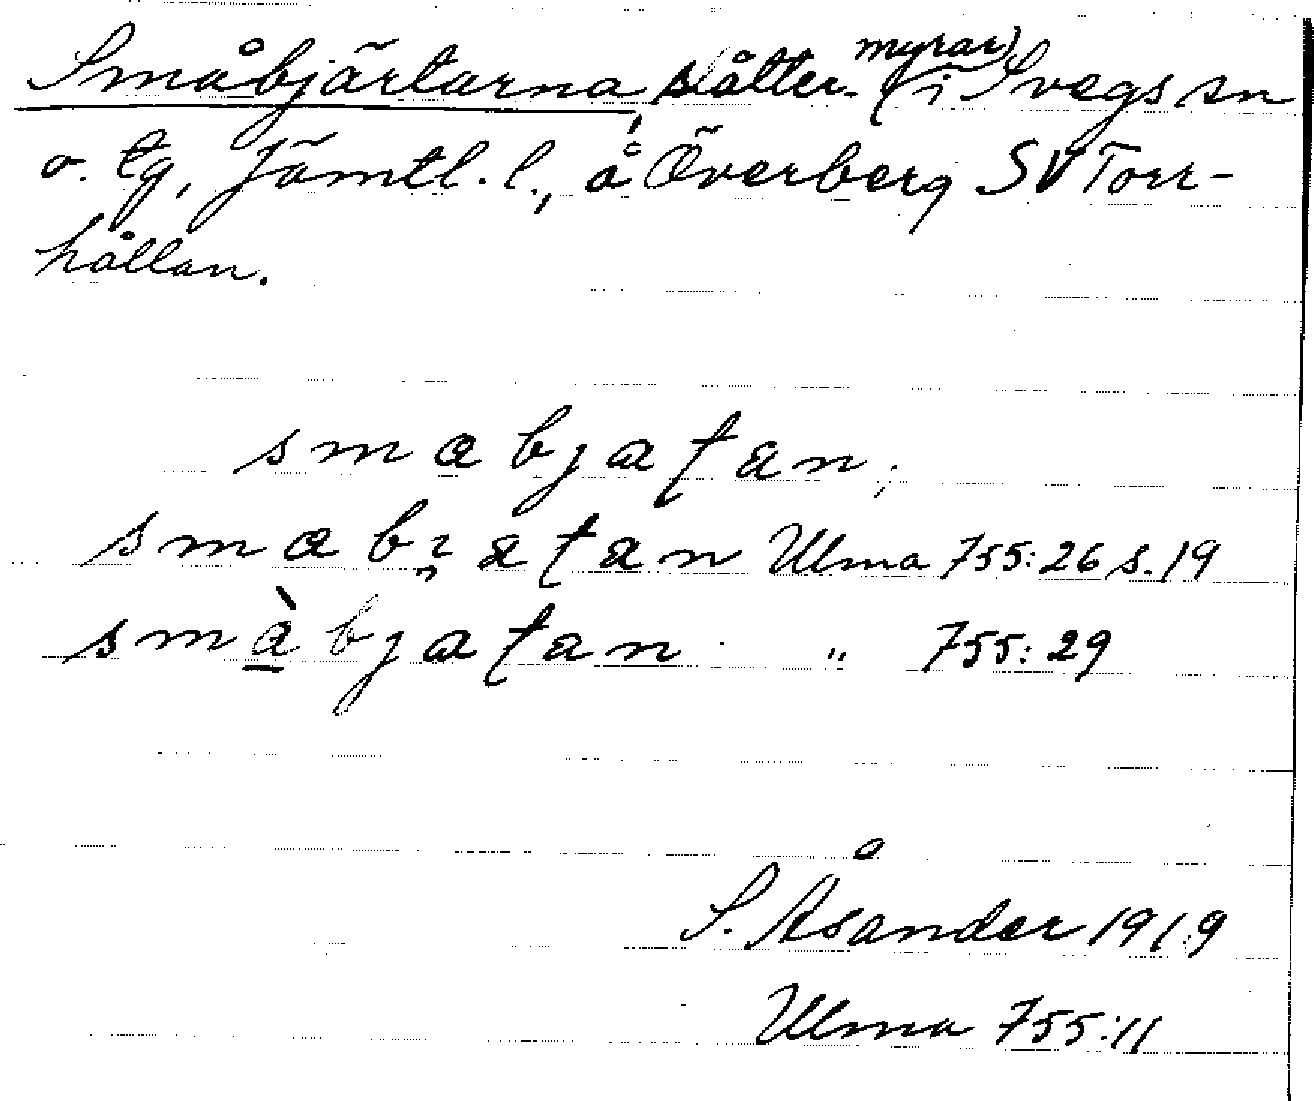 Småbjärtarna, slåtter-myrar) i Svegs sn
o. tg, Jämtl. l., å Överberg SV Torr-
hållan.
smabjaʈan;
smabɪ̯aʈan Ulma 755:26 s. 19
smàbjaʈan " 755:29
S. Åsander 1919
Ulma 755:11